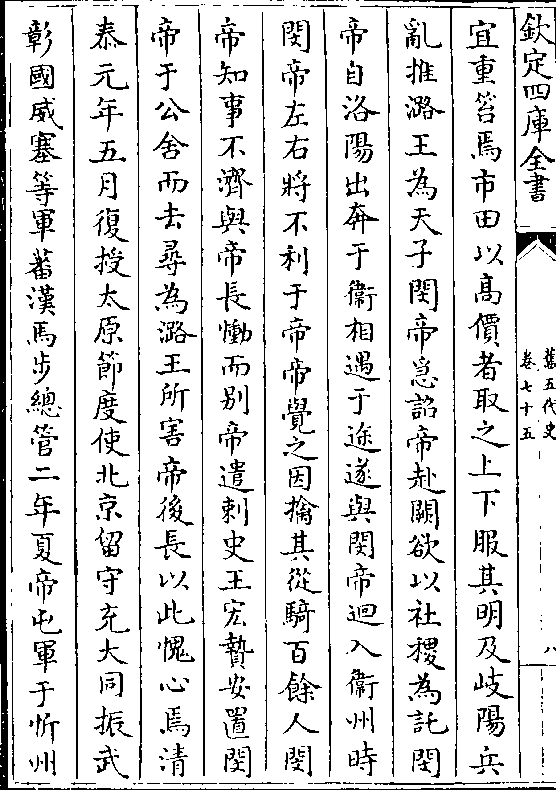 欽定四庫全書
舊五代史
卷七十五
八
宜重笞焉市田以高價者取之上下服其明及岐陽兵
亂推潞王為天子閔帝急詔帝赴闕欲以社稷為託閔
帝自洛陽出奔于衞相遇于途遂與閔帝迴入衞州時
閔帝左右將不利于帝帝覺之因擒其從騎百餘人閔
帝知事不濟與帝長慟而别帝遣刺史王宏贄安置閔
帝于公舍而去尋為潞王所害帝後長以此愧心焉清
泰元年五月復授太原節度使北京留守充大同振武
彰國威塞等軍蕃漢馬步總管二年夏帝屯軍于忻州